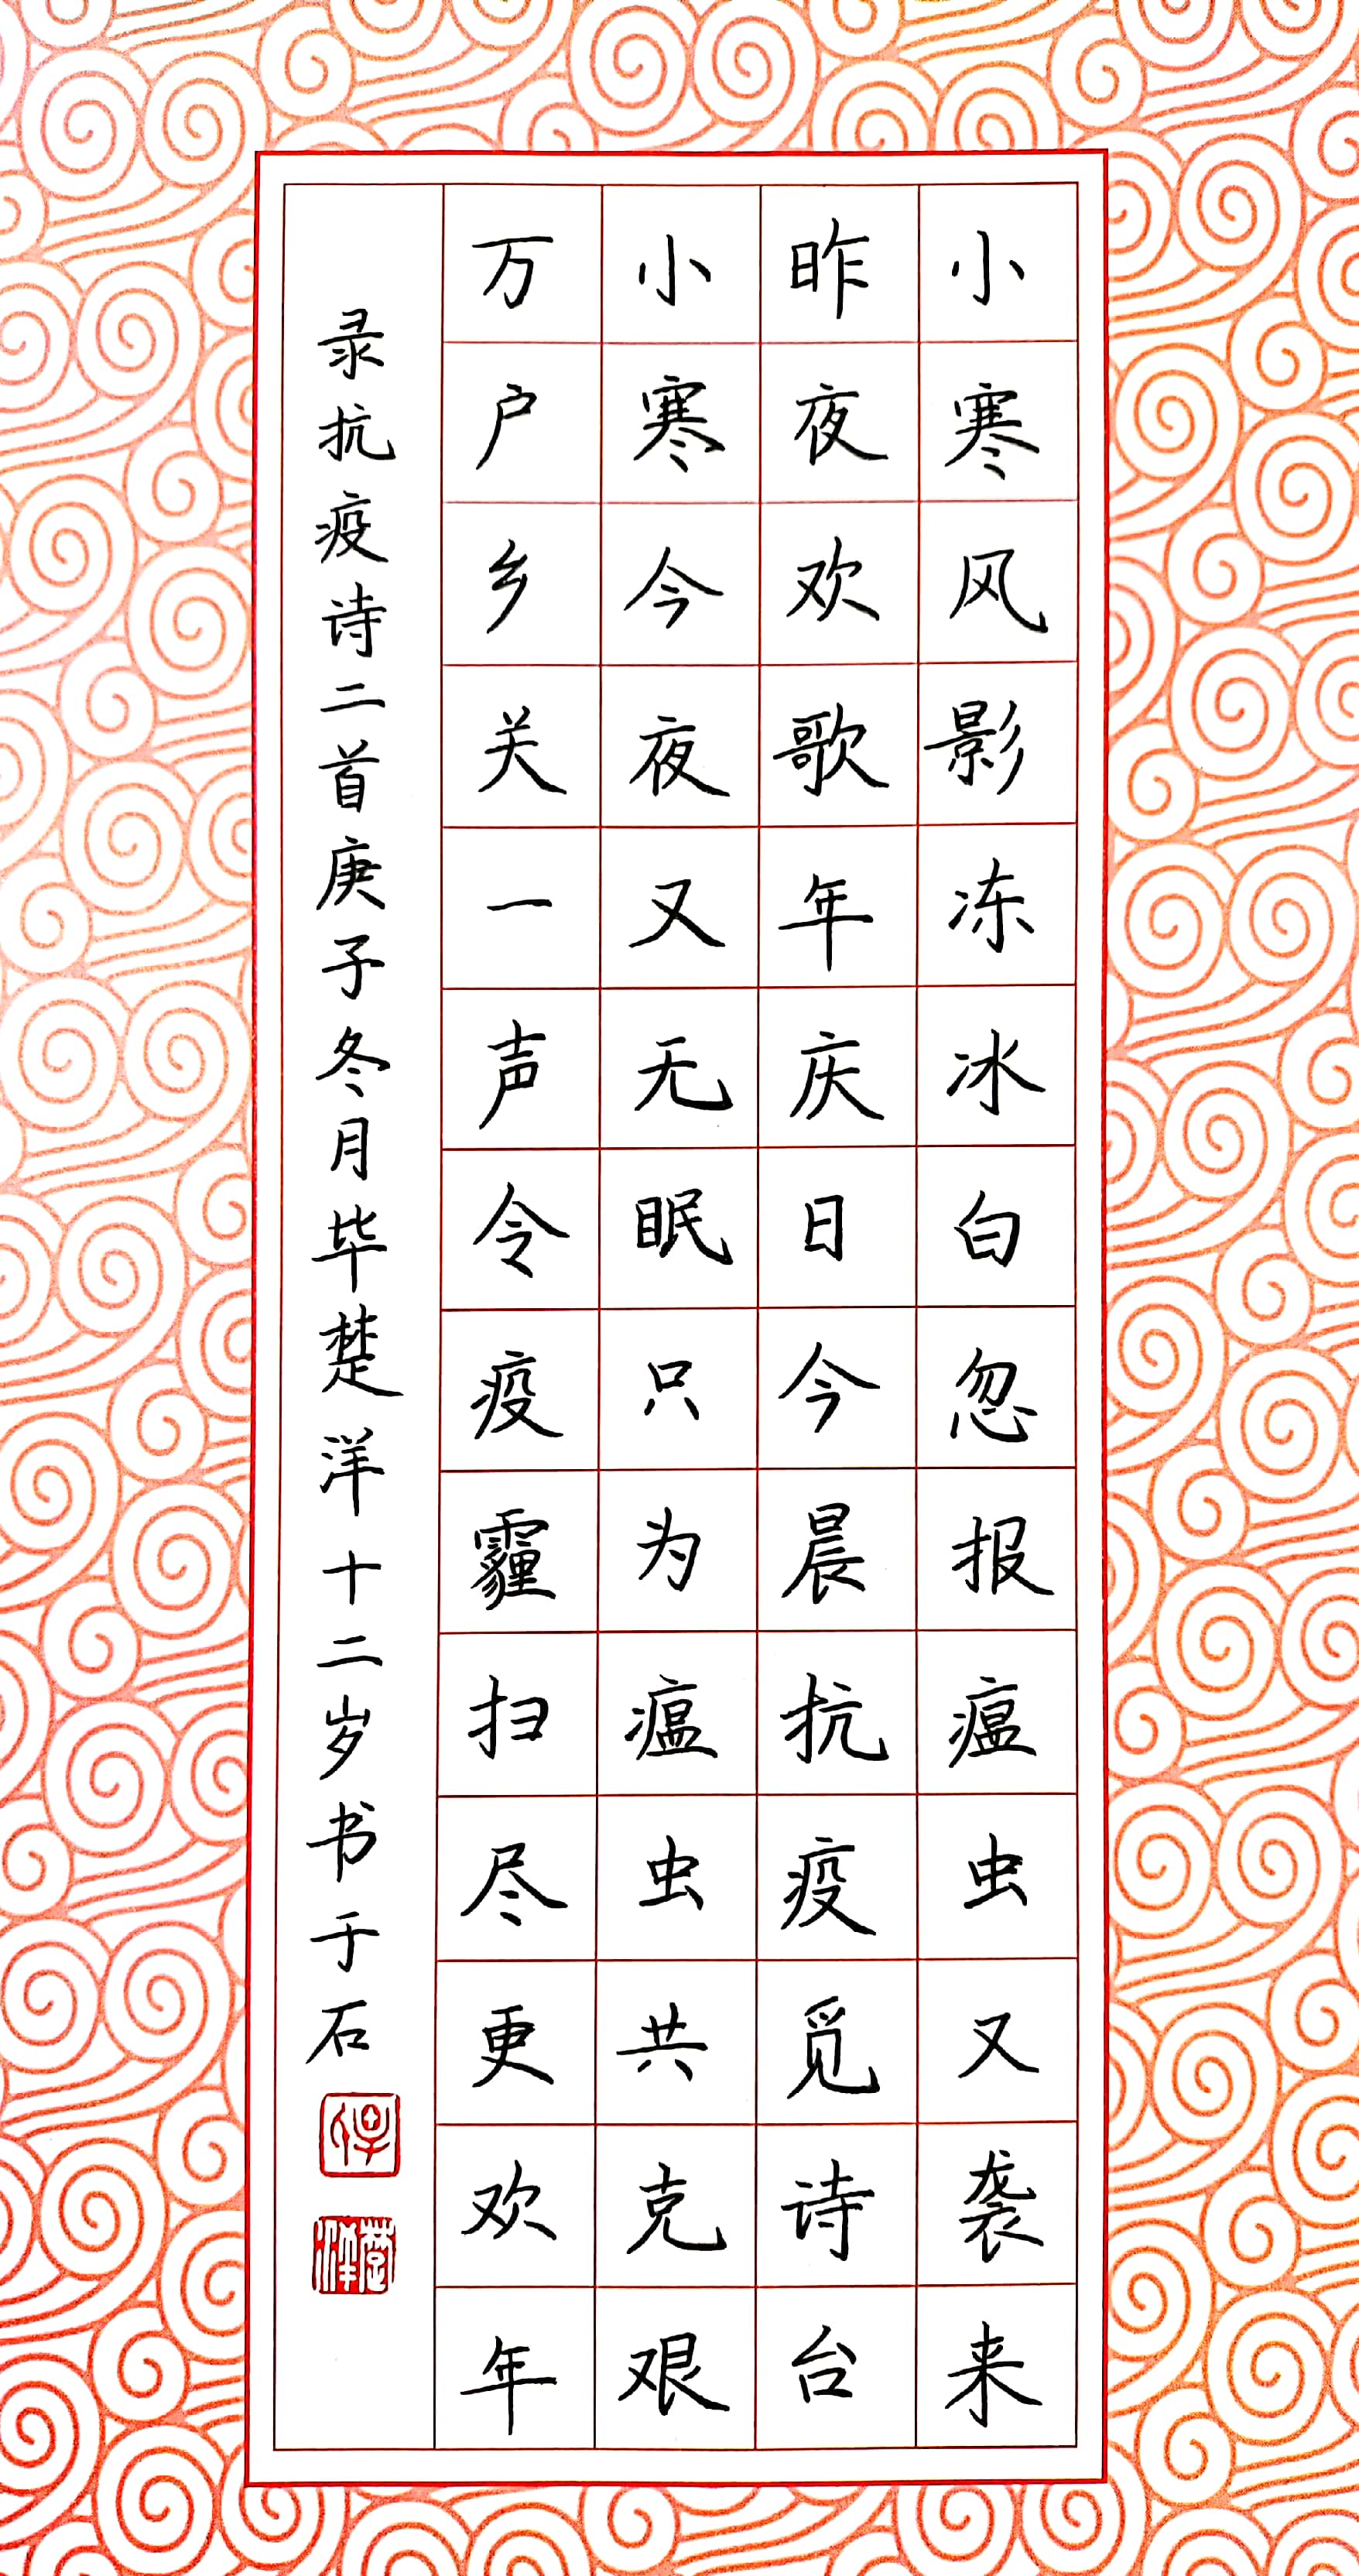 小寒风影冻冰白忽报瘟虫又袭来
昨夜欢歌年庆日今晨抗疫觅诗台
小寒今夜又无眠只为瘟虫共克艰
万户乡关一声令疫霾扫尽更欢年
录抗疫诗二首庚子冬月毕楚洋十二岁书于石